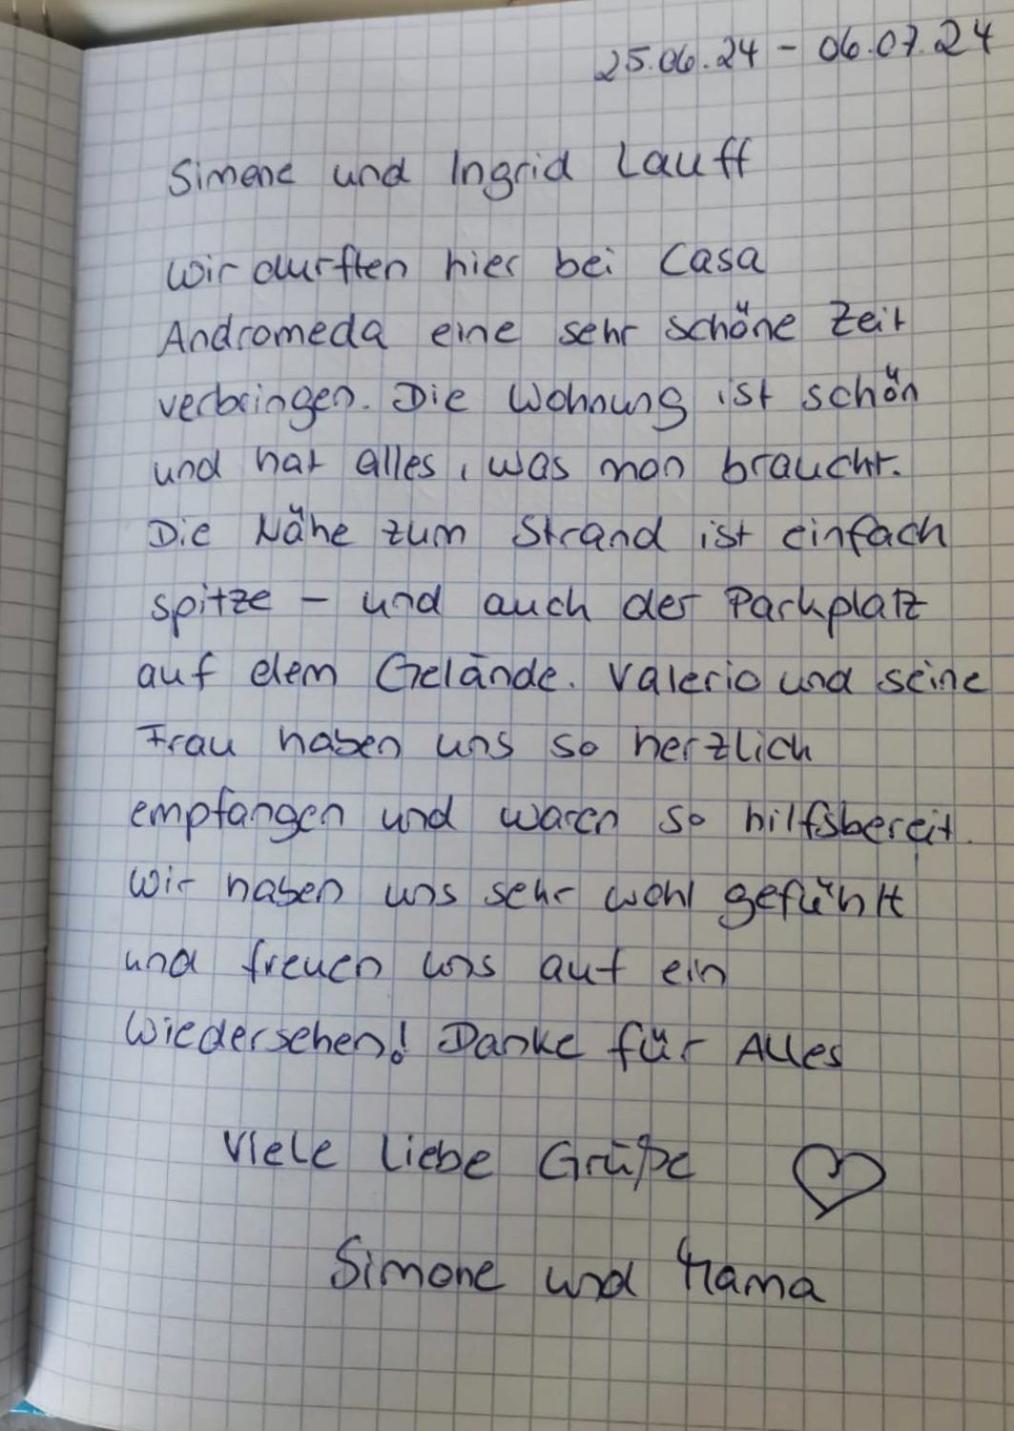 25.06.24 - 06.07.24
Simone und Ingrid Lauff
Wir durften hier bei Casa
Andromeda eine sehr schöne Zeit
verbringen. Die Wohnung ist schön
und hat alles, was man braucht.
Die Nähe zum Strand ist einfach
spitze - und auch der Parkplatz
auf dem Gelände. Valerio und seine
Frau haben uns so herzlich
empfangen und waren so hilfsbereit.
Wir haben uns sehr wohl gefühlt
und freuen uns auf ein
Wiedersehen! Danke für Alles
Viele Liebe Grüße
Simone und Mama